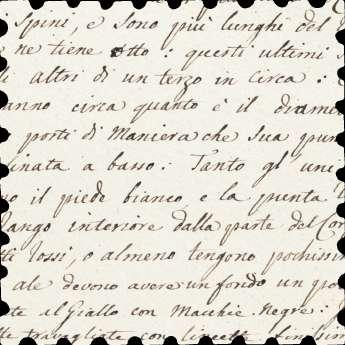 Spini, e sono più lunghi del
ne tiene otto: questi ultimi
altri di un terzo in circa:
anno circa quanto è il diame
porti di Maniera che Sua pun
linata a basso: Tanto gl' une
o il piede bianco, e la punta
lango interiore dalla parte del Cor
tti rossi, o almeno tengono pochissi
ale devono avere un fondo un po
te al Giallo con Macchie Negre:
travegliate con linette